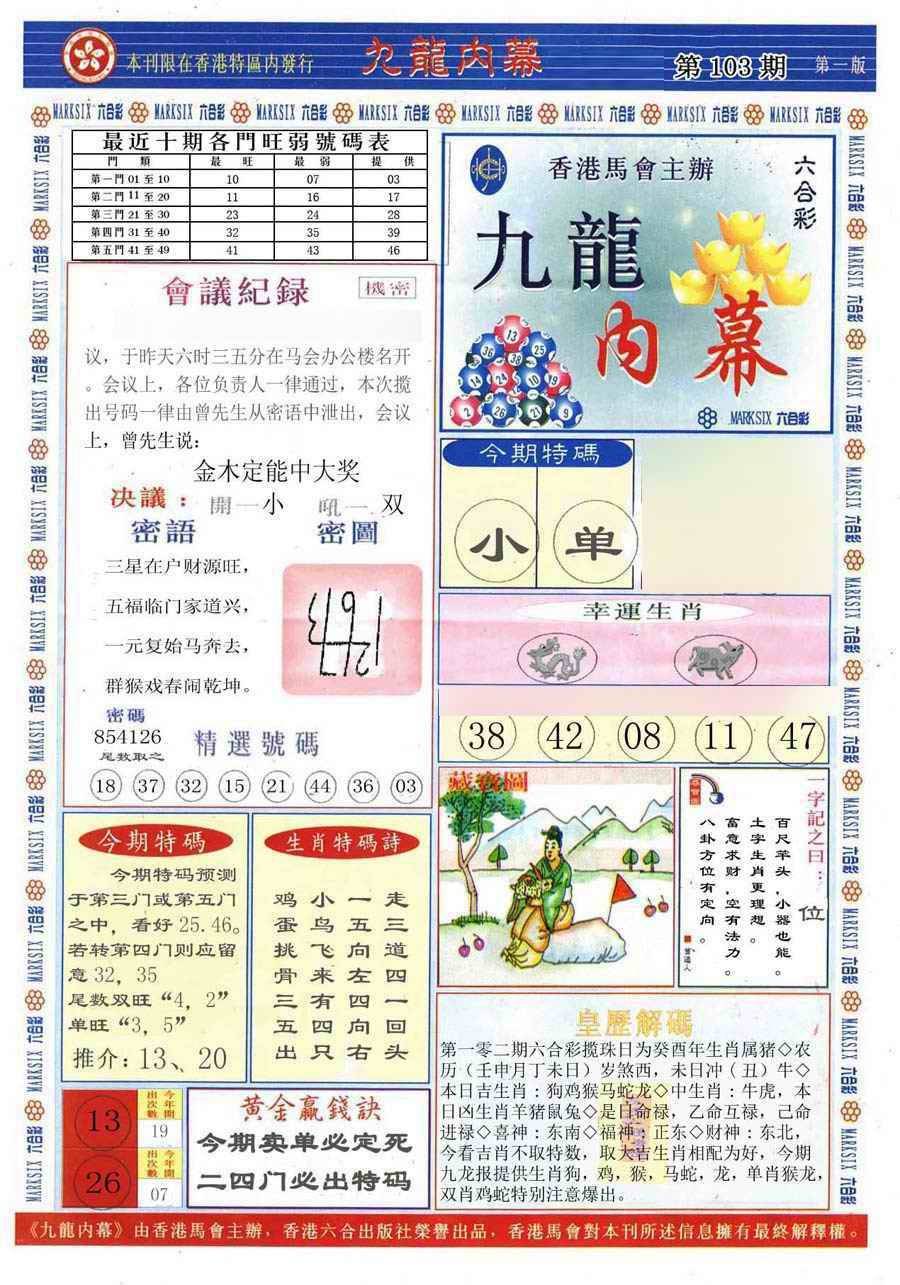 本刊限在香港特區内發行
九龍内幕
第 103 期
第一版
MARKSIX 六合彩
最近十期各門旺弱號碼表
門 類 最 旺 最 弱 提 供
第一門 01 至 10 10 07 03
第二門 11 至 20 11 16 17
第三門 21 至 30 23 24 28
第四門 31 至 40 32 35 39
第五門 41 至 49 41 43 46
會議紀录
機密
议，于昨天六时三五分在马会办公楼名开
。会议上，各位负责人一律通过，本次揽
出号码一律由曾先生从密语中泄出，会议
上，曾先生说：
金木定能中大奖
决議： 開一小 吼一 双
密語 密圖
三星在户财源旺，
五福临门家道兴，
一元复始马奔去，
群猴戏春闹乾坤。
密碼
854126
尾数取之
精選號碼
18 37 32 15 21 44 36 03
香港馬會主辦
六合彩
九龍
内幕
13
36 38 25
14 24 10 19
2 26 21 9
MARKSIX 六合彩
今期特碼
小 单
幸運生肖
38 42 08 11 47
藏寶圖
一字記之曰：
位
百尺竿头，小器也能。
土字生肖更理想。
富意求财，空有法力。
八卦方位有定向。
曾道人
今期特碼
今期特码预测
于第三门或第五门
之中，看好 25.46。
若转第四门则应留
意 32，35
尾数双旺“4，2”
单旺“3，5”
推介：13、20
生肖特碼詩
鸡 小 一 走
蛋 鸟 五 三
挑 飞 向 道
骨 来 左 四
三 有 四 一
五 四 向 回
出 只 右 头
13
今年開出次數
19
26
今年開出次數
07
黃金贏錢訣
今期卖单必定死
二四门必出特码
皇歷解碼
第一零二期六合彩揽珠日为癸酉年生肖属猪◇农
历（壬申月丁未日）岁煞西，未日冲（丑）牛◇
本日吉生肖：狗鸡猴马蛇龙◇中生肖：牛虎，本
日凶生肖羊猪鼠兔◇是日命禄，乙命互禄，己命
进禄◇喜神：东南◇福神：正东◇财神：东北，
今看吉肖不取特数，取大吉生肖相配为好，今期
九龙报提供生肖狗，鸡，猴，马蛇，龙，单肖猴龙，
双肖鸡蛇特别注意爆出。
《九龍内幕》由香港馬會主辦，香港六合出版社榮譽出品，香港馬會對本刊所述信息擁有最終解釋權。